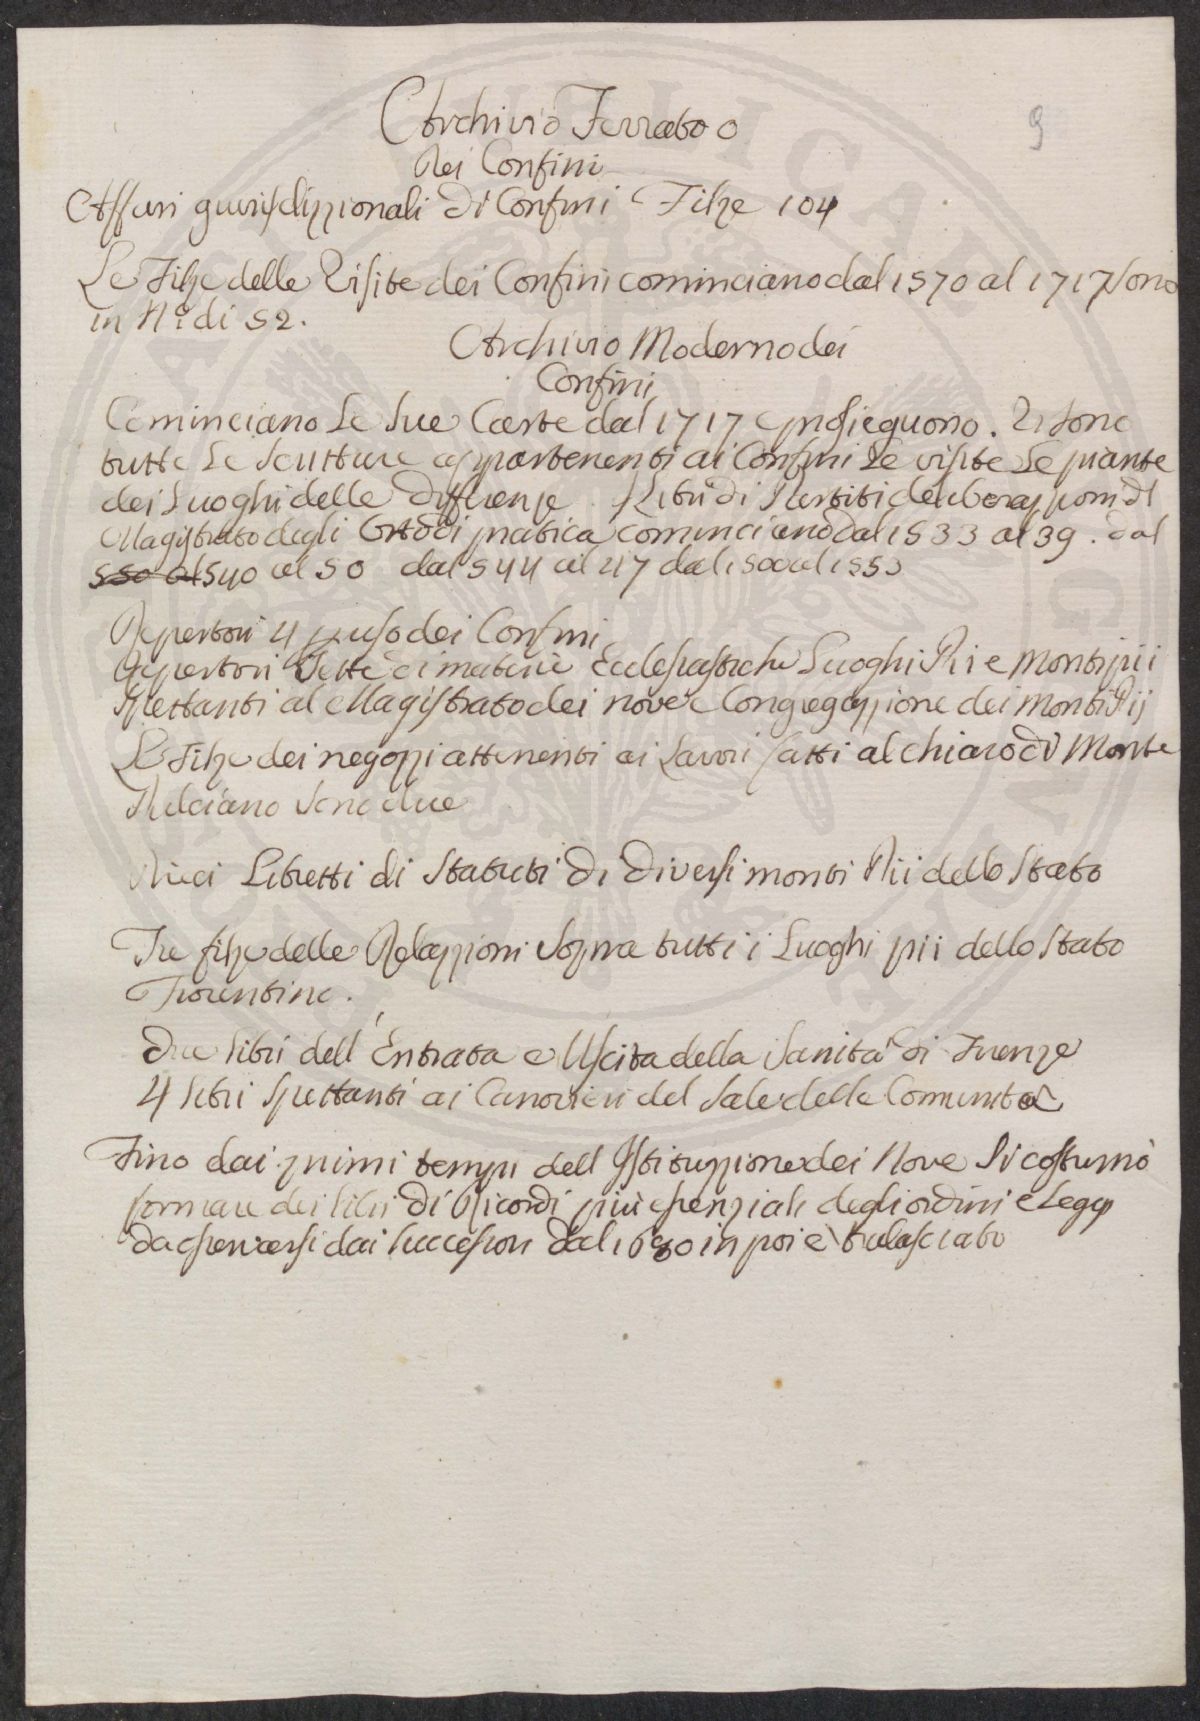 9
Archivio Ferrato o
Dei Confini
Affari giurisdizzionali di Confini Filze 104
Le Filze delle Visite dei Confini cominciano dal 1570 al 1717 sono
in N.o di 52.
Archivio Moderno dei
Confini
Cominciano le sue Carte dal 1717 e prosieguono. Vi sono
tutte le scritture appartenenti ai Confini le visite le piante
dei Luoghi delle differenze. Libri di Partiti deliberazzioni dl
Magistrato degli Otto di pratica cominciano dal 1533 al 39. dal
550 al 540 al 50 dal 544 al 47 dal 1500 al 1553
Repertori 4 p uso dei Confini
Repertori Sette di materie Ecclesiastiche Luoghi Pii e Monti pii
Spettanti al Magistrato dei nove e Congregazzione dei Monti Pij
Le Filze dei negozzi attenenti ai Lavori fatti al chiaro di Monte
Pulciano sono due
Dieci Libretti di Statuti di diversi monti Pii dello Stato
Tre filze delle Relazzioni sopra tutti i Luoghi pii dello Stato
Fiorentino.
Due libri dell'Entrata e Uscita della Sanità di Firenze
4 libri spettanti ai Canovieri del Sale delle Comunità
Fino dai primi tempi dell Istituzzione dei Nove si costumò
formare dei libri di Ricordi più essenziali degli ordini e Leggi
da osservarsi dai successori dal 1680 in poi è tralasciato